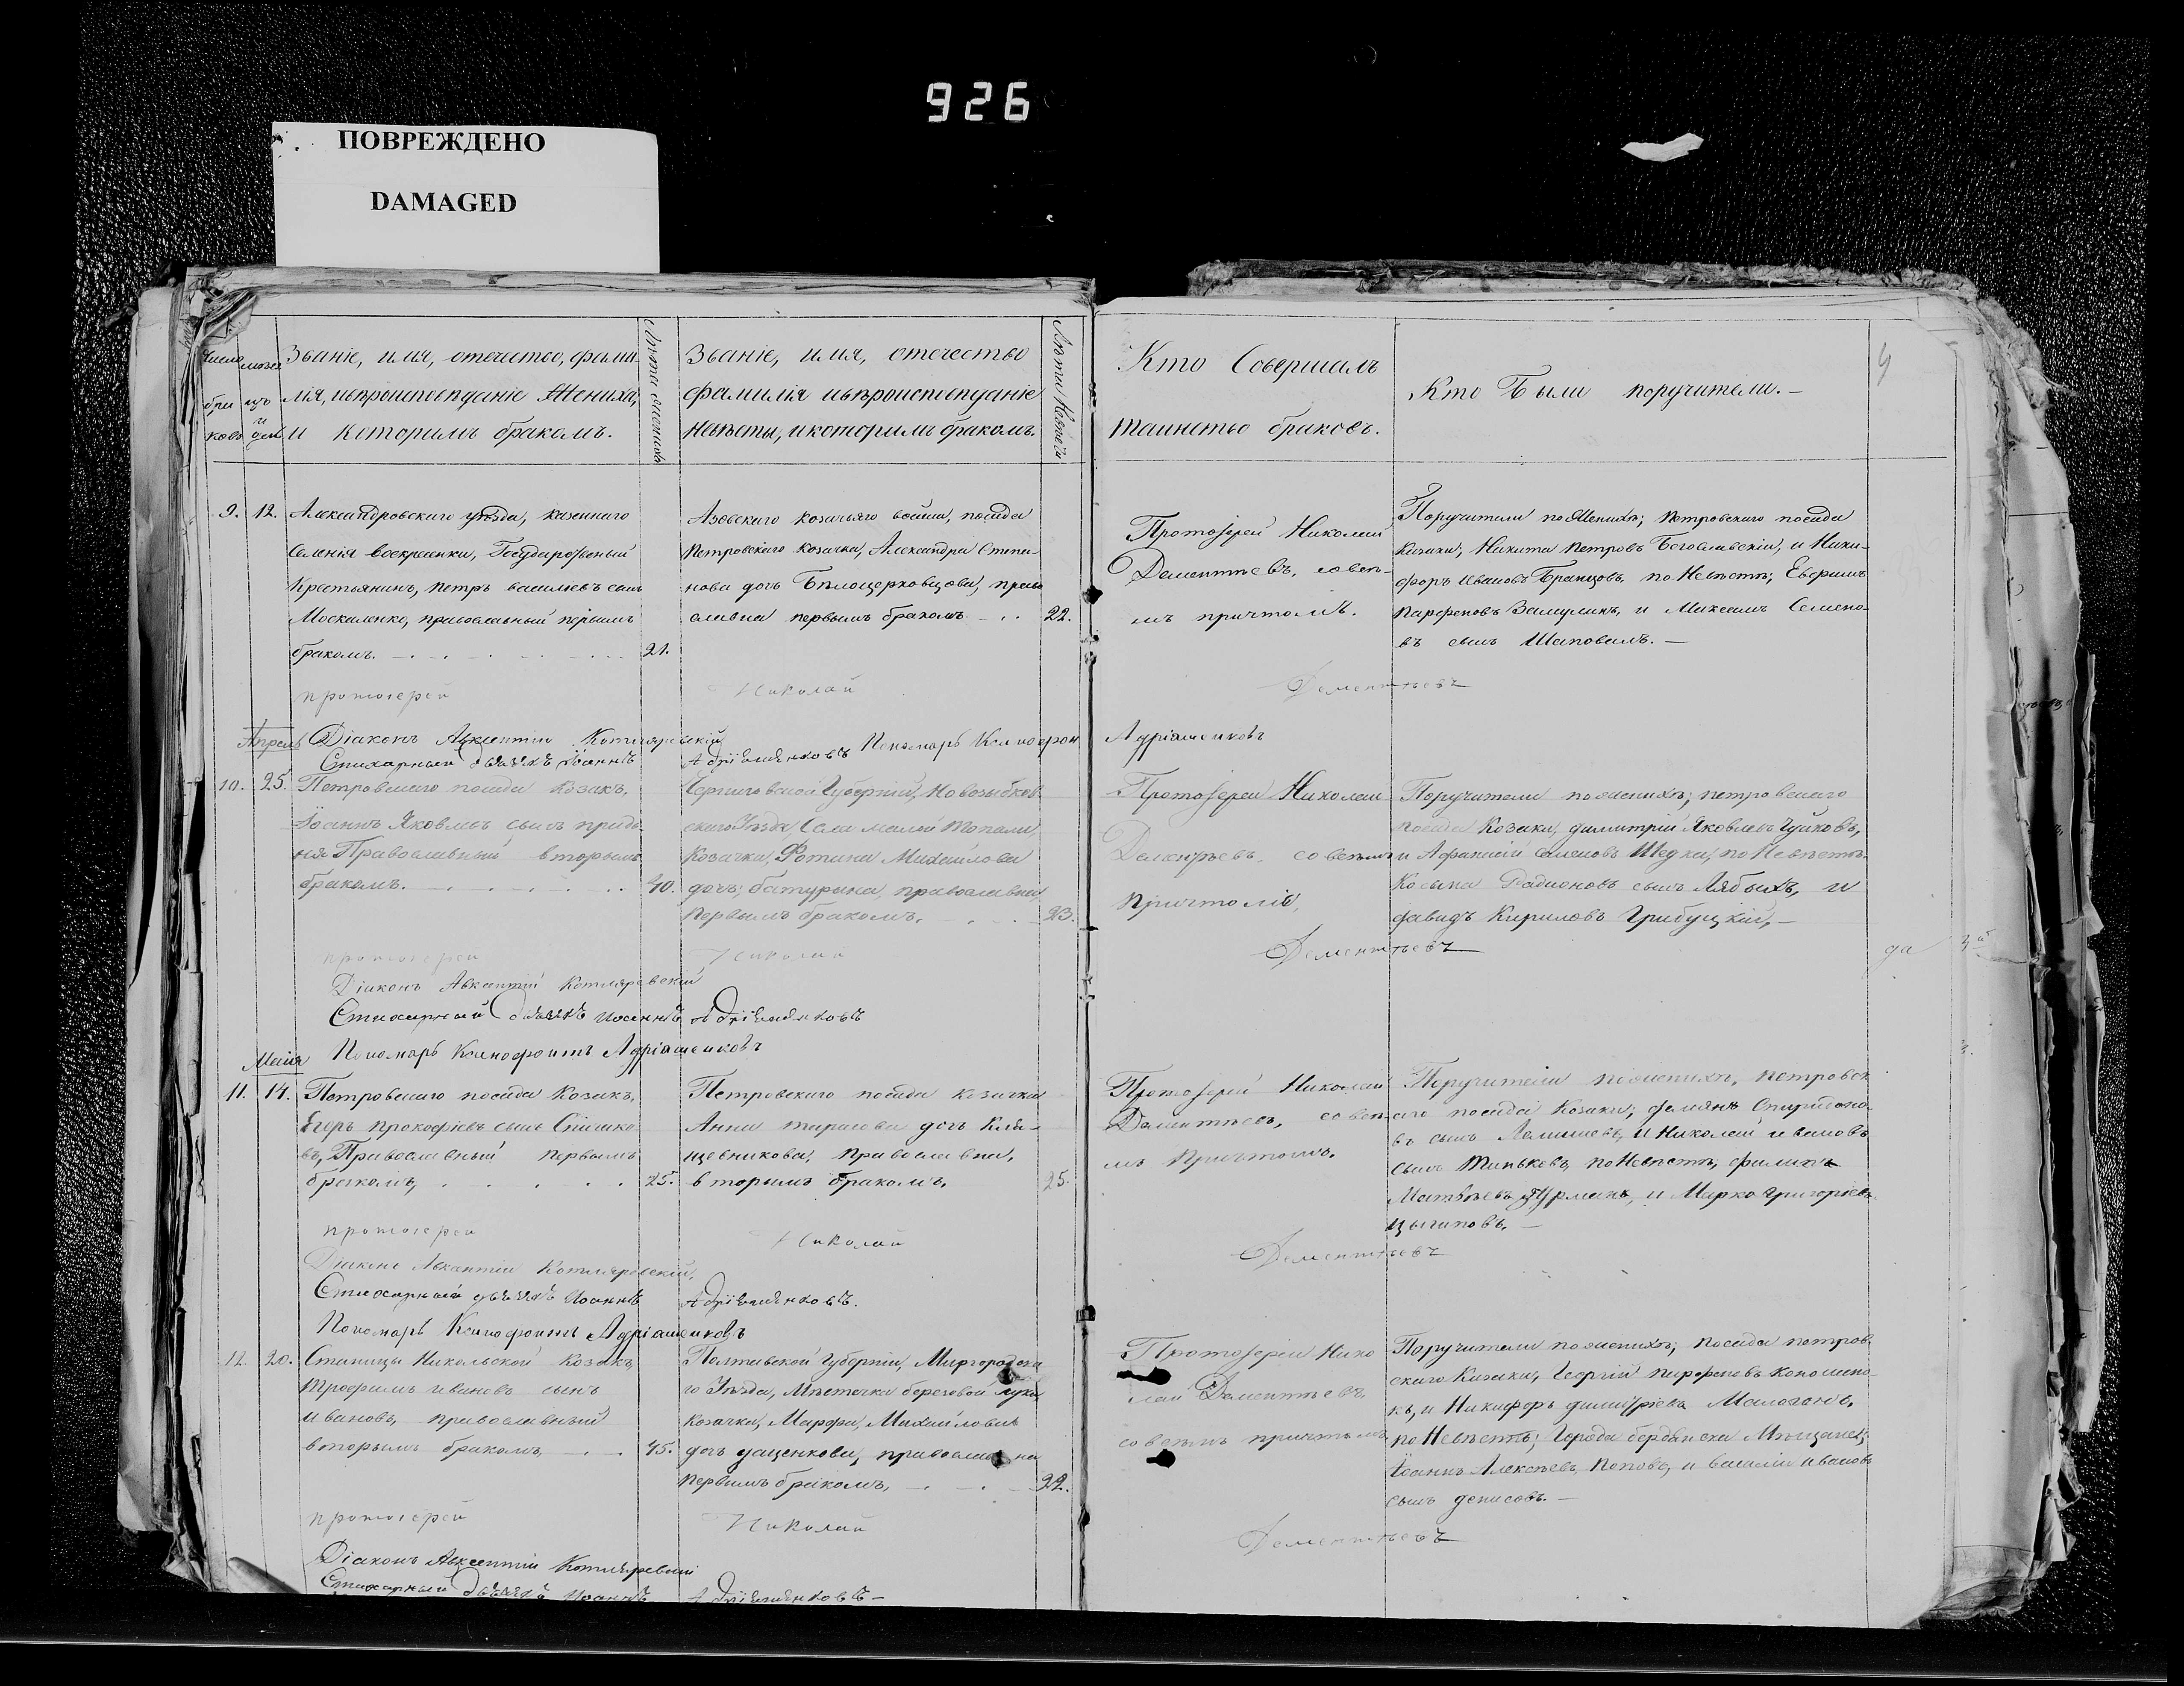 926
ПОВРЕЖДЕНО
DAMAGED
Число браковъ
месяцъ и день
Званіе, имя, отечество, фами-
лія, ивѣроисповѣданіе Жениха,
и которимъ бракомъ.
Лѣта жениховъ
Званіе, имя, отечество
фамилія ивѣроисповѣданіе
Невѣсты, икоторимъ бракомъ.
Лѣта Невѣсты
Кто Совершалъ
таинство браковъ.
Кто Были поручители.-
9. 12. Александровского уѣзда, казенного
селенія воскрсенки, Государственый
Крестьянинъ, петръ василіевъ сынъ
Москаленко, православный первымъ
бракомъ. 21.
Азовскаго козачьяго войска, посада
петровскаго козачка, Александра Степа-
нова дочъ Бѣлоцерковцова, право
славна первымъ бракомъ 22.
Протоіерей Николай
Дементѣевъ, совсѣ-
мъ причтомъ.
Поручители поЖенихѣ; петровскаго посада
козаки; Никита петровъ Богославскій, и Ники-
форъ ивановъ Бранцовъ, по Невѣстѣ; Ефримъ
парфеновъ Замулинъ, и Михаилъ Семено-
въ сынъ Шаповалъ.
протоіерей Николай Дементьевъ
Апрель
Діаконъ Авксентій Котляревскій Пономарь Ксенофон Адріашенковъ
Стихарный дьячекъ Іоаннъ Адріяшенковъ
10. 25. Петровскаго посада Козакъ,
Іоаннъ Яковлевъ сынъ придь
ня Православный вторымъ
бракомъ. 40.
Черниговской Губерніи, Новозыбков
скаго Уѣзда, Села малой Топали,
Козачка, Фотина Михайлова
дочъ; батурина, православна
первымъ бракомъ. 23.
Протоіерей Николай
Дементѣевъ, совсѣмъ
причтомъ,
Поручители поженихѣ; петровскаго
посада Козаки, димитрій Яковлевъ Чуйковъ,
и Афанасій Семеновъ Шедка, по Невѣстѣ.
Косьма Радионовъ сынъ Лябыхъ, и
давидъ Кириловъ Грибуцкій,-
протоіерей Николай Дементьевъ
да
Діаконъ Авксентій Котляревскій
Стихарный дьячекъ Иоаннъ Адріяшенковъ
Пономарь Ксенофонтъ Адріашенковъ
Маія
11. 14. Петровскаго посада Козакъ,
Егоръ прокофіевъ сынъ Спичко
въ, Православный первымъ
бракомъ, 25.
Петровскаго посада козачка
Анна тарасова дочъ Кля-
щевникова, православна,
вторымъ бракомъ, 25.
Протоіерей Николай
Дементѣевъ, совсѣ
мъ причтомъ.
Поручители поженихѣ, петровск
аго посада Козаки; демянъ Спиридоно
въ сынъ Ламишевъ, и Николай ивановъ
сынъ тиньковъ, поНевѣстѣ, филипъ
Матвѣевъ Турманъ, и Марко григоріевъ
цыгановъ,
протоіерей Николай Дементьевъ
Діаконъ Авксентій Котляревскій,
Стихарный дьячекъ Иоаннъ Адріяшенковъ.
Пономарь Ксенофонтъ Адріашенковъ
12. 20. Станицы Никольской Козакъ
трофимъ ивановъ сынъ
ивановъ, православный
вторымъ бракомъ, 45.
Полтавской Губерніи, Миргородска
го Уѣзда, мѣстечка береговой луки,
козачка, Марфа, Михайлова
дочъ даценкова, православ на
первымъ бракомъ, 22.
Протоіерей Нико
лай Дементѣевъ
совсѣмъ причтомъ
Поручители поженихѣ; посада петров
скаго Козаки, Георгій парфеневъ Кономено
къ, и Никифоръ димитріевъ Малоганъ,
по Невѣстѣ; Города бердянска Мѣщане;
Іоаннъ Алексѣевъ поповъ, и василій ивановъ
сынъ денисовъ.
протоіерей Николай Дементьевъ
Діаконъ Авксентій Котляревскій
Стихарный дьячекъ Иоаннъ Адріяшенковъ